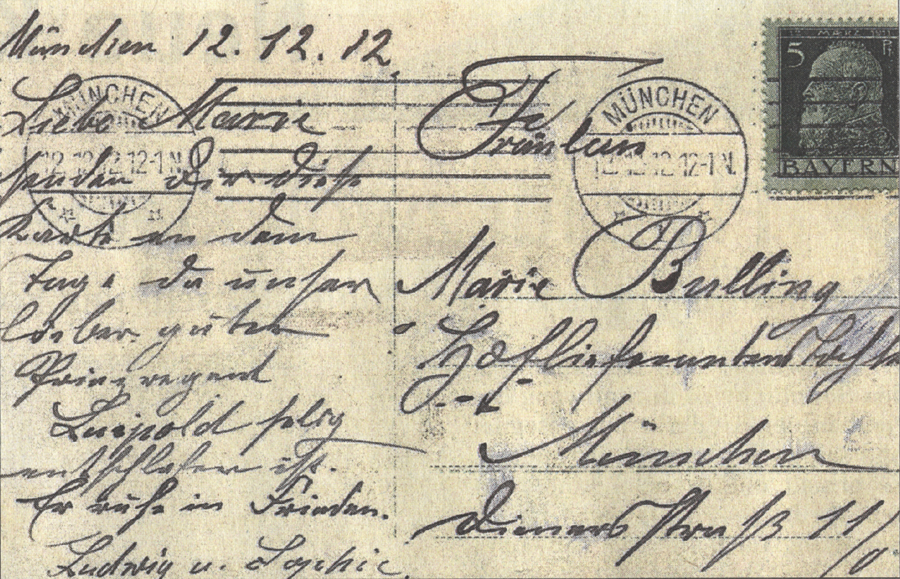 München 12.12.12.
Liebe Marie
senden Dir diese
Karte an dem
Tage da unser
lieber guter
Prinzregent
Luipold selig
entschlafen ist.
Er ruhe in Frieden.
Ludwig u. Sophie.
Fräulein
Marie Bulling
Hoflieferantens Tocht
München
Dienerstraße 11/
MÜNCHEN
12.12.12 12-1 N.
MÜNCHEN
12.12.12 12-1 N.
5 Pf
BAYERN